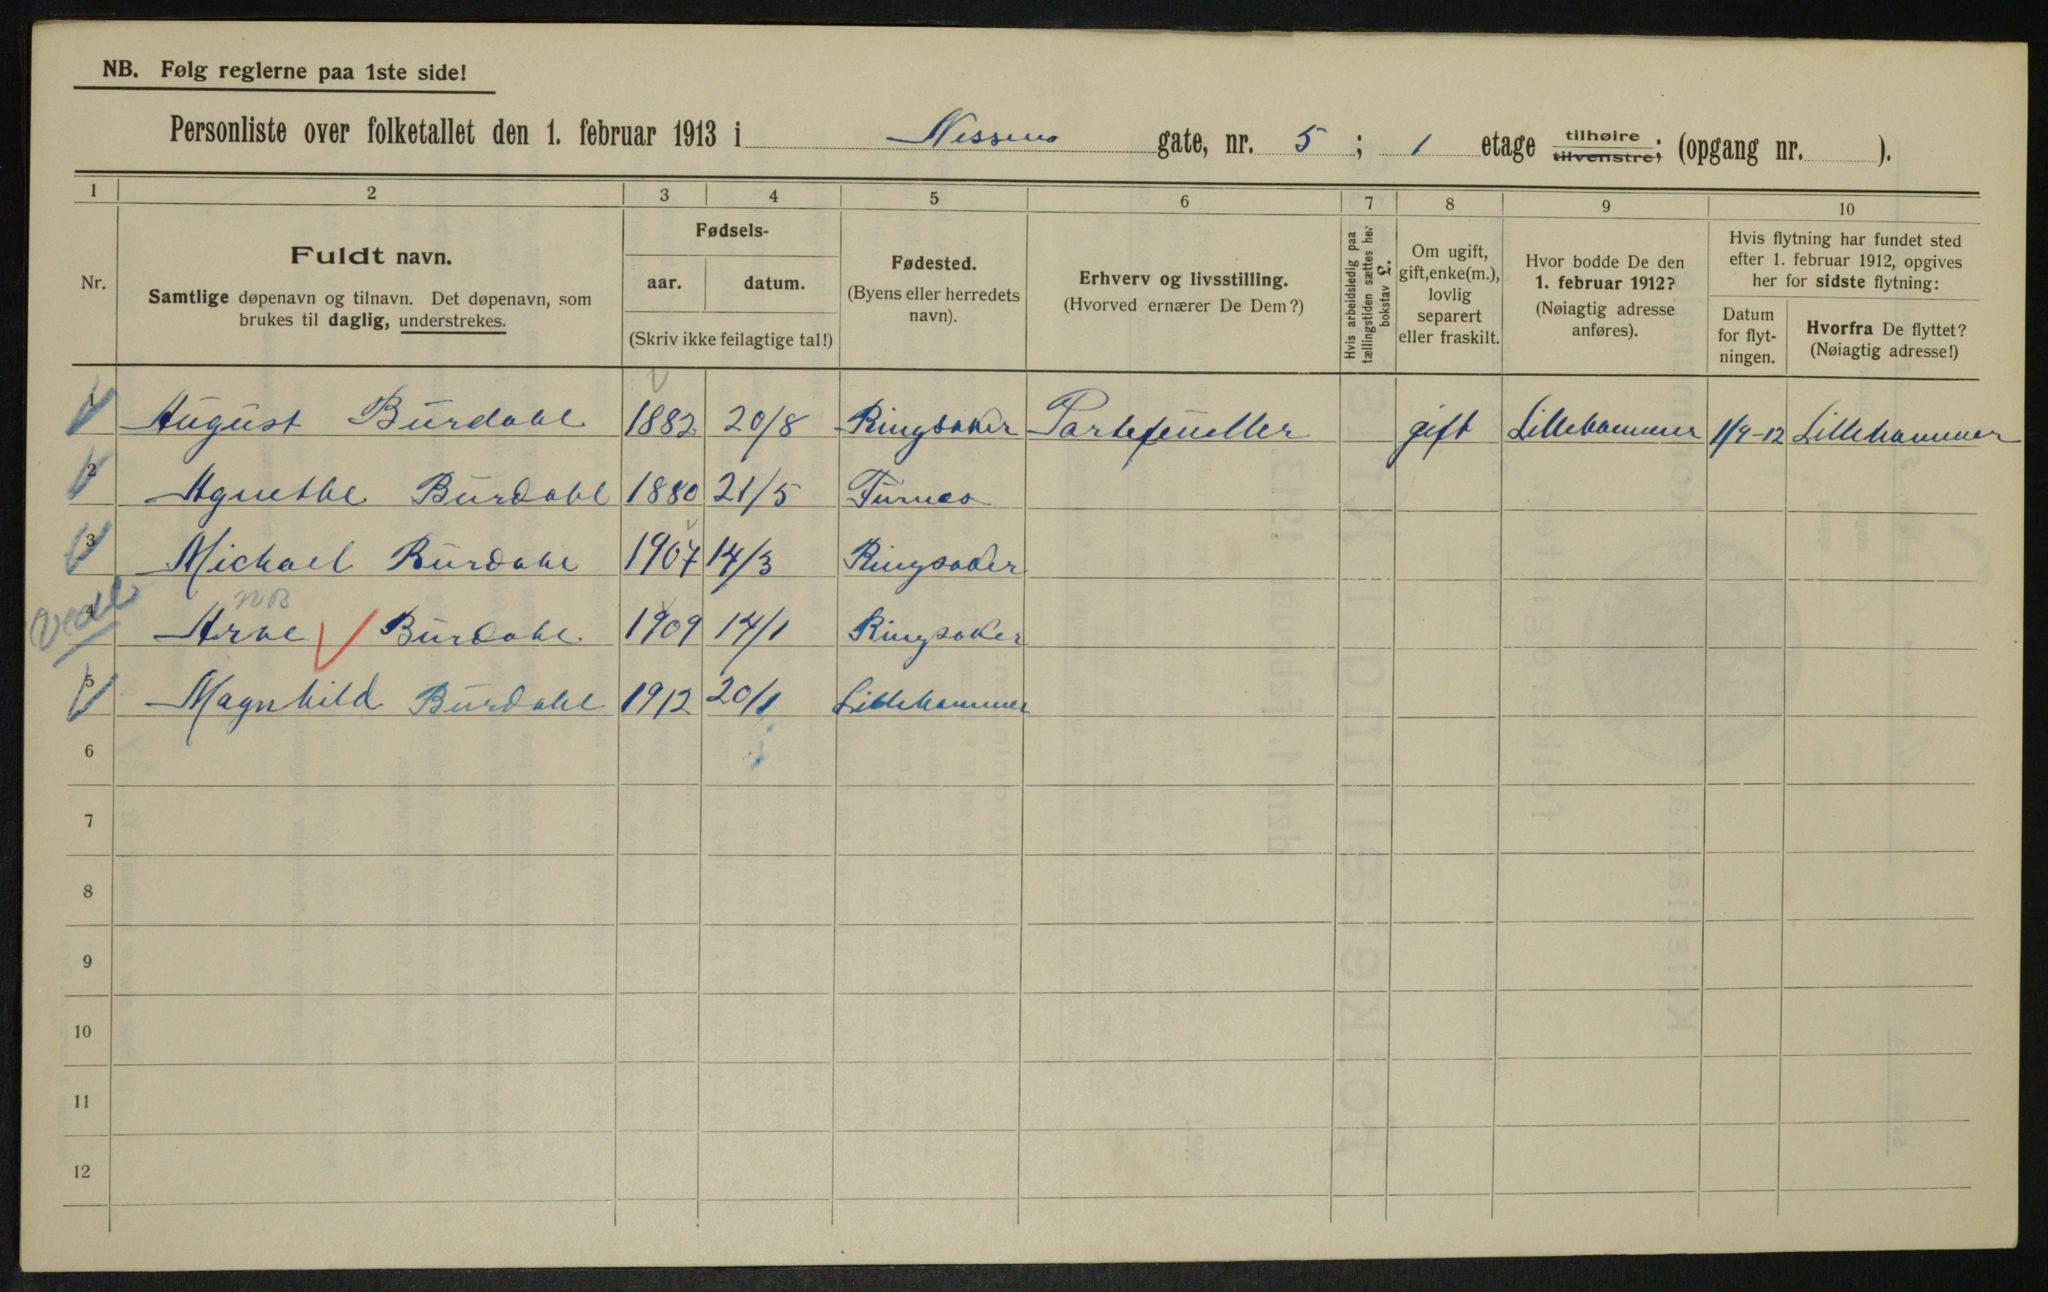 NB. Følg reglerne paa 1ste side!
Personliste over folketallet den 1. februar 1913 i Nessens gate, nr. 5; 1 etage tilhøire tilvenstre; (opgang nr. ).
1 2 3 4 5 6 7 8 9 10
Nr.
Fuldt navn.
Samtlige døpenavn og tilnavn. Det døpenavn, som
brukes til daglig, understrekes.
Fødsels-
aar. datum.
(Skriv ikke feilagtige tal!)
Fødested.
(Byens eller herredets
navn).
Erhverv og livsstilling.
(Hvorved ernærer De Dem?)
Hvis arbeidsledig paa
tællingstiden sættes her
bokstav £.
Om ugift,
gift, enke(m.),
lovlig
separert
eller fraskilt.
Hvor bodde De den
1. februar 1912?
(Nøiagtig adresse
anføres).
Hvis flytning har fundet sted
efter 1. februar 1912, opgives
her for sidste flytning:
Datum
for flyt-
ningen.
Hvorfra De flyttet?
(Nøiagtig adresse!)
1 August Burdahl 1882 20/8 Ringsaker Portefeuller gift Lillehammer 1/4-12 Lillehammer
2 Agnethe Burdahl 1880 21/5 Furnes
3 Michael Burdahl 1907 14/3 Ringsaker
NB
4 Arne Burdahl 1909 14/1 Ringsaker
5 Magnhild Burdahl 1912 20/1 Lillehammer
6
7
8
9
10
11
12